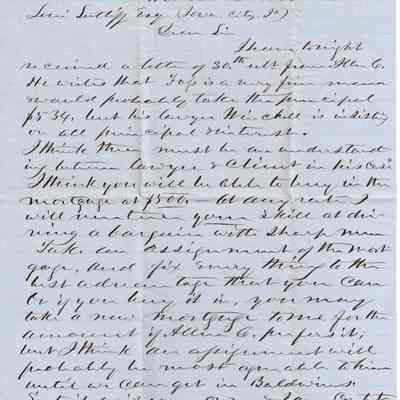 Levi Sutliff Esq (Iowa City, Ia)
Dear Sir
I have to night
received a letter of 30th ult from Allen C.
He writes that Fog is a very fine man &
would probably take the principal
$534, but his lawyer Winchell is insisting
on all principal & interest.
I think there must be an understand
ing between lawyer & Client in his case
I think you will be able to buy in the
mortgage at $500,— At any rate I
will venture your skill at dri-
ving a bargain with sharp men
Take an assignment of the mort
gage, and fix every thing to the
best advantage that you can
Or if you buy it in, you may
take a new mortgage to me for the
amount if Allen C. prefers it;
but I think an assignment will
probably be most agreeable to him
until we can get in Baldwins